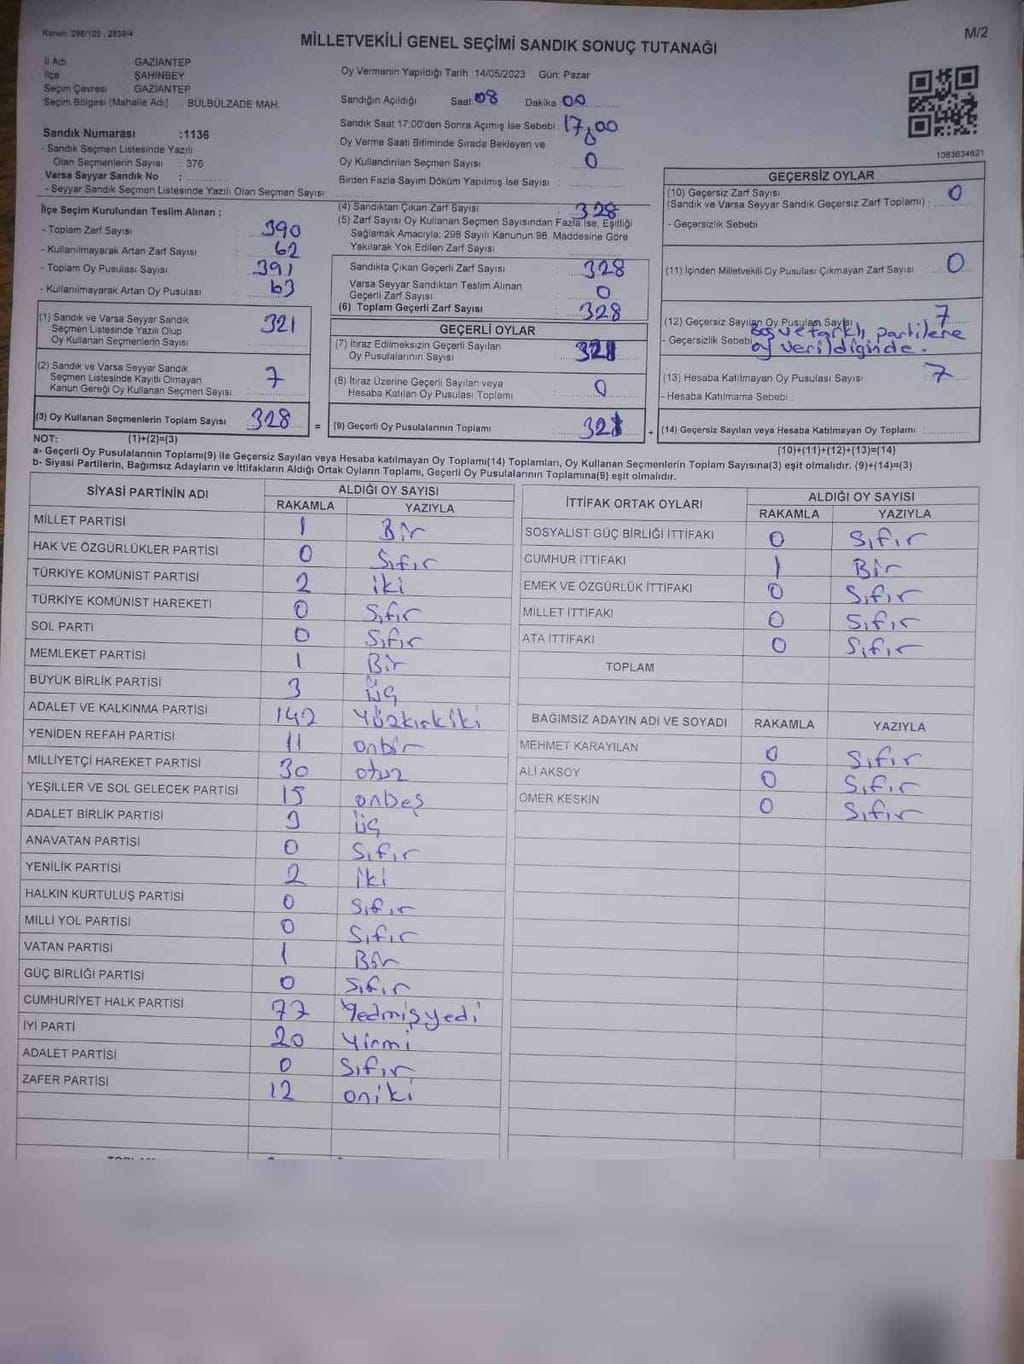 Kanun: 298/105, 2839/4
M/2
MİLLETVEKİLİ GENEL SEÇİMİ SANDIK SONUÇ TUTANAĞI
İl Adı GAZİANTEP
İlçe ŞAHİNBEY
Seçim Çevresi GAZİANTEP
Seçim Bölgesi (Mahalle Adı) BÜLBÜLZADE MAH.
Sandık Numarası :1136
- Sandık Seçmen Listesinde Yazılı
Olan Seçmenlerin Sayısı : 376
Varsa Seyyar Sandık No :
- Seyyar Sandık Seçmen Listesinde Yazılı Olan Seçmen Sayısı:
Oy Vermenin Yapıldığı Tarih :14/05/2023 Gün: Pazar
Sandığın Açıldığı Saat 08 Dakika 00
Sandık Saat 17:00'den Sonra Açımış İse Sebebi : 17,00
Oy Verme Saati Bitiminde Sırada Bekleyen ve
Oy Kullandırılan Seçmen Sayısı 0
Birden Fazla Sayım Döküm Yapılmış İse Sayısı :
1083634621
İlçe Seçim Kurulundan Teslim Alınan ;
- Toplam Zarf Sayısı 390
- Kullanılmayarak Artan Zarf Sayısı : 62
- Toplam Oy Pusulası Sayısı : 391
- Kullanılmayarak Artan Oy Pusulası : 63
(1) Sandık ve Varsa Seyyar Sandık
Seçmen Listesinde Yazılı Olup
Oy Kullanan Seçmenlerin Sayısı 321
(2) Sandık ve Varsa Seyyar Sandık
Seçmen Listesinde Kayıtlı Olmayan
Kanun Gereği Oy Kullanan Seçmen Sayısı : 7
(3) Oy Kullanan Seçmenlerin Toplam Sayısı 328 =
(4) Sandıktan Çıkan Zarf Sayısı 328
(5) Zarf Sayısı Oy Kullanan Seçmen Sayısından Fazla İse, Eşitliği
Sağlamak Amacıyla; 298 Sayılı Kanunun 98. Maddesine Göre
Yakılarak Yok Edilen Zarf Sayısı
Sandıkta Çıkan Geçerli Zarf Sayısı : 328
Varsa Seyyar Sandıktan Teslim Alınan
Geçerli Zarf Sayısı : 0
(6) Toplam Geçerli Zarf Sayısı : 328
GEÇERLİ OYLAR
(7) İtiraz Edilmeksizin Geçerli Sayılan
Oy Pusulalarının Sayısı :
(8) İtiraz Üzerine Geçerli Sayılan veya
Hesaba Katılan Oy Pusulası Toplamı : 0
(9) Geçerli Oy Pusulalarının Toplamı : 321 +
GEÇERSİZ OYLAR
(10) Geçersiz Zarf Sayısı
(Sandık ve Varsa Seyyar Sandık Geçersiz Zarf Toplamı) : 0
- Geçersizlik Sebebi
(11) İçinden Milletvekili Oy Pusulası Çıkmayan Zarf Sayısı : 0
(12) Geçersiz Sayılan Oy Pusulası Sayısı 7
- Geçersizlik Sebebi Boş ve farklı, partilere
oy verildiğinde.
(13) Hesaba Katılmayan Oy Pusulası Sayısı : 7
- Hesaba Katılmama Sebebi :
(14) Geçersiz Sayılan veya Hesaba Katılmayan Oy Toplamı :
NOT: (1)+(2)=(3) (10)+(11)+(12)+(13)=(14)
a- Geçerli Oy Pusulalarının Toplamı(9) ile Geçersiz Sayılan veya Hesaba Katılmayan Oy Toplamı(14) Toplamları, Oy Kullanan Seçmenlerin Toplam Sayısına(3) eşit olmalıdır. (9)+(14)=(3)
b- Siyasi Partilerin, Bağımsız Adayların ve İttifakların Aldığı Ortak Oyların Toplamı, Geçerli Oy Pusulalarının Toplamına(9) eşit olmalıdır.
SİYASİ PARTİNİN ADI ALDIĞI OY SAYISI
RAKAMLA YAZIYLA
MİLLET PARTİSİ 1 Bir
HAK VE ÖZGÜRLÜKLER PARTİSİ 0 Sıfır
TÜRKİYE KOMÜNİST PARTİSİ 2 iki
TÜRKİYE KOMÜNİST HAREKETİ 0 Sıfır
SOL PARTİ 0 Sıfır
MEMLEKET PARTİSİ 1 Bir
BÜYÜK BİRLİK PARTİSİ 3 üç
ADALET VE KALKINMA PARTİSİ 142 Yüzkırkiki
YENİDEN REFAH PARTİSİ 11 onbir
MİLLİYETÇİ HAREKET PARTİSİ 30 otuz
YEŞİLLER VE SOL GELECEK PARTİSİ 15 onbeş
ADALET BİRLİK PARTİSİ 3 üç
ANAVATAN PARTİSİ 0 Sıfır
YENİLİK PARTİSİ 2 İki
HALKIN KURTULUŞ PARTİSİ 0 Sıfır
MİLLİ YOL PARTİSİ 0 Sıfır
VATAN PARTİSİ 1 Bir
GÜÇ BİRLİĞİ PARTİSİ 0 Sıfır
CUMHURİYET HALK PARTİSİ 77 Yedmişyedi
İYİ PARTİ 20 Yirmi
ADALET PARTİSİ 0 Sıfır
ZAFER PARTİSİ 12 oniki
İTTİFAK ORTAK OYLARI ALDIĞI OY SAYISI
RAKAMLA YAZIYLA
SOSYALİST GÜÇ BİRLİĞİ İTTİFAKI 0 Sıfır
CUMHUR İTTİFAKI 1 Bir
EMEK VE ÖZGÜRLÜK İTTİFAKI 0 Sıfır
MİLLET İTTİFAKI 0 Sıfır
ATA İTTİFAKI 0 Sıfır
TOPLAM
BAĞIMSIZ ADAYIN ADI VE SOYADI RAKAMLA YAZIYLA
MEHMET KARAYILAN 0 Sıfır
ALİ AKSOY 0 Sıfır
ÖMER KESKİN 0 Sıfır